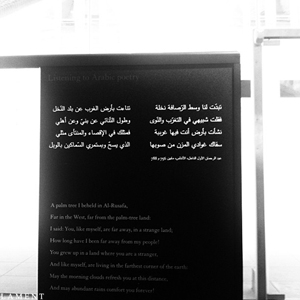 Listening to Arabic poetry
تبدّت لنا وسط الرّصافة نخلة
تناءت بأرض الغرب عن بلد النّخل
فقلت شبيهي في التغرّب والنّوى
وطول التّنائي عن بنيّ وعن أهلي
نشأت بأرض أنت فيها غريبة
فمثلك في الإقصاء والمنتأى مثلي
سقاك غوادي المزن من صوبها
الذي يسحّ ويستمري السّماكين بالوبل
A palm tree I beheld in Al-Rusafa,
Far in the West, far from the palm-tree land:
I said: You, like myself, are far away, in a strange land;
How long have I been far away from my people!
You grew up in a land where you are a stranger,
And like myself, are living in the farthest corner of the earth:
May the morning clouds refresh you at this distance,
And may abundant rains comfort you forever!
LAMENT